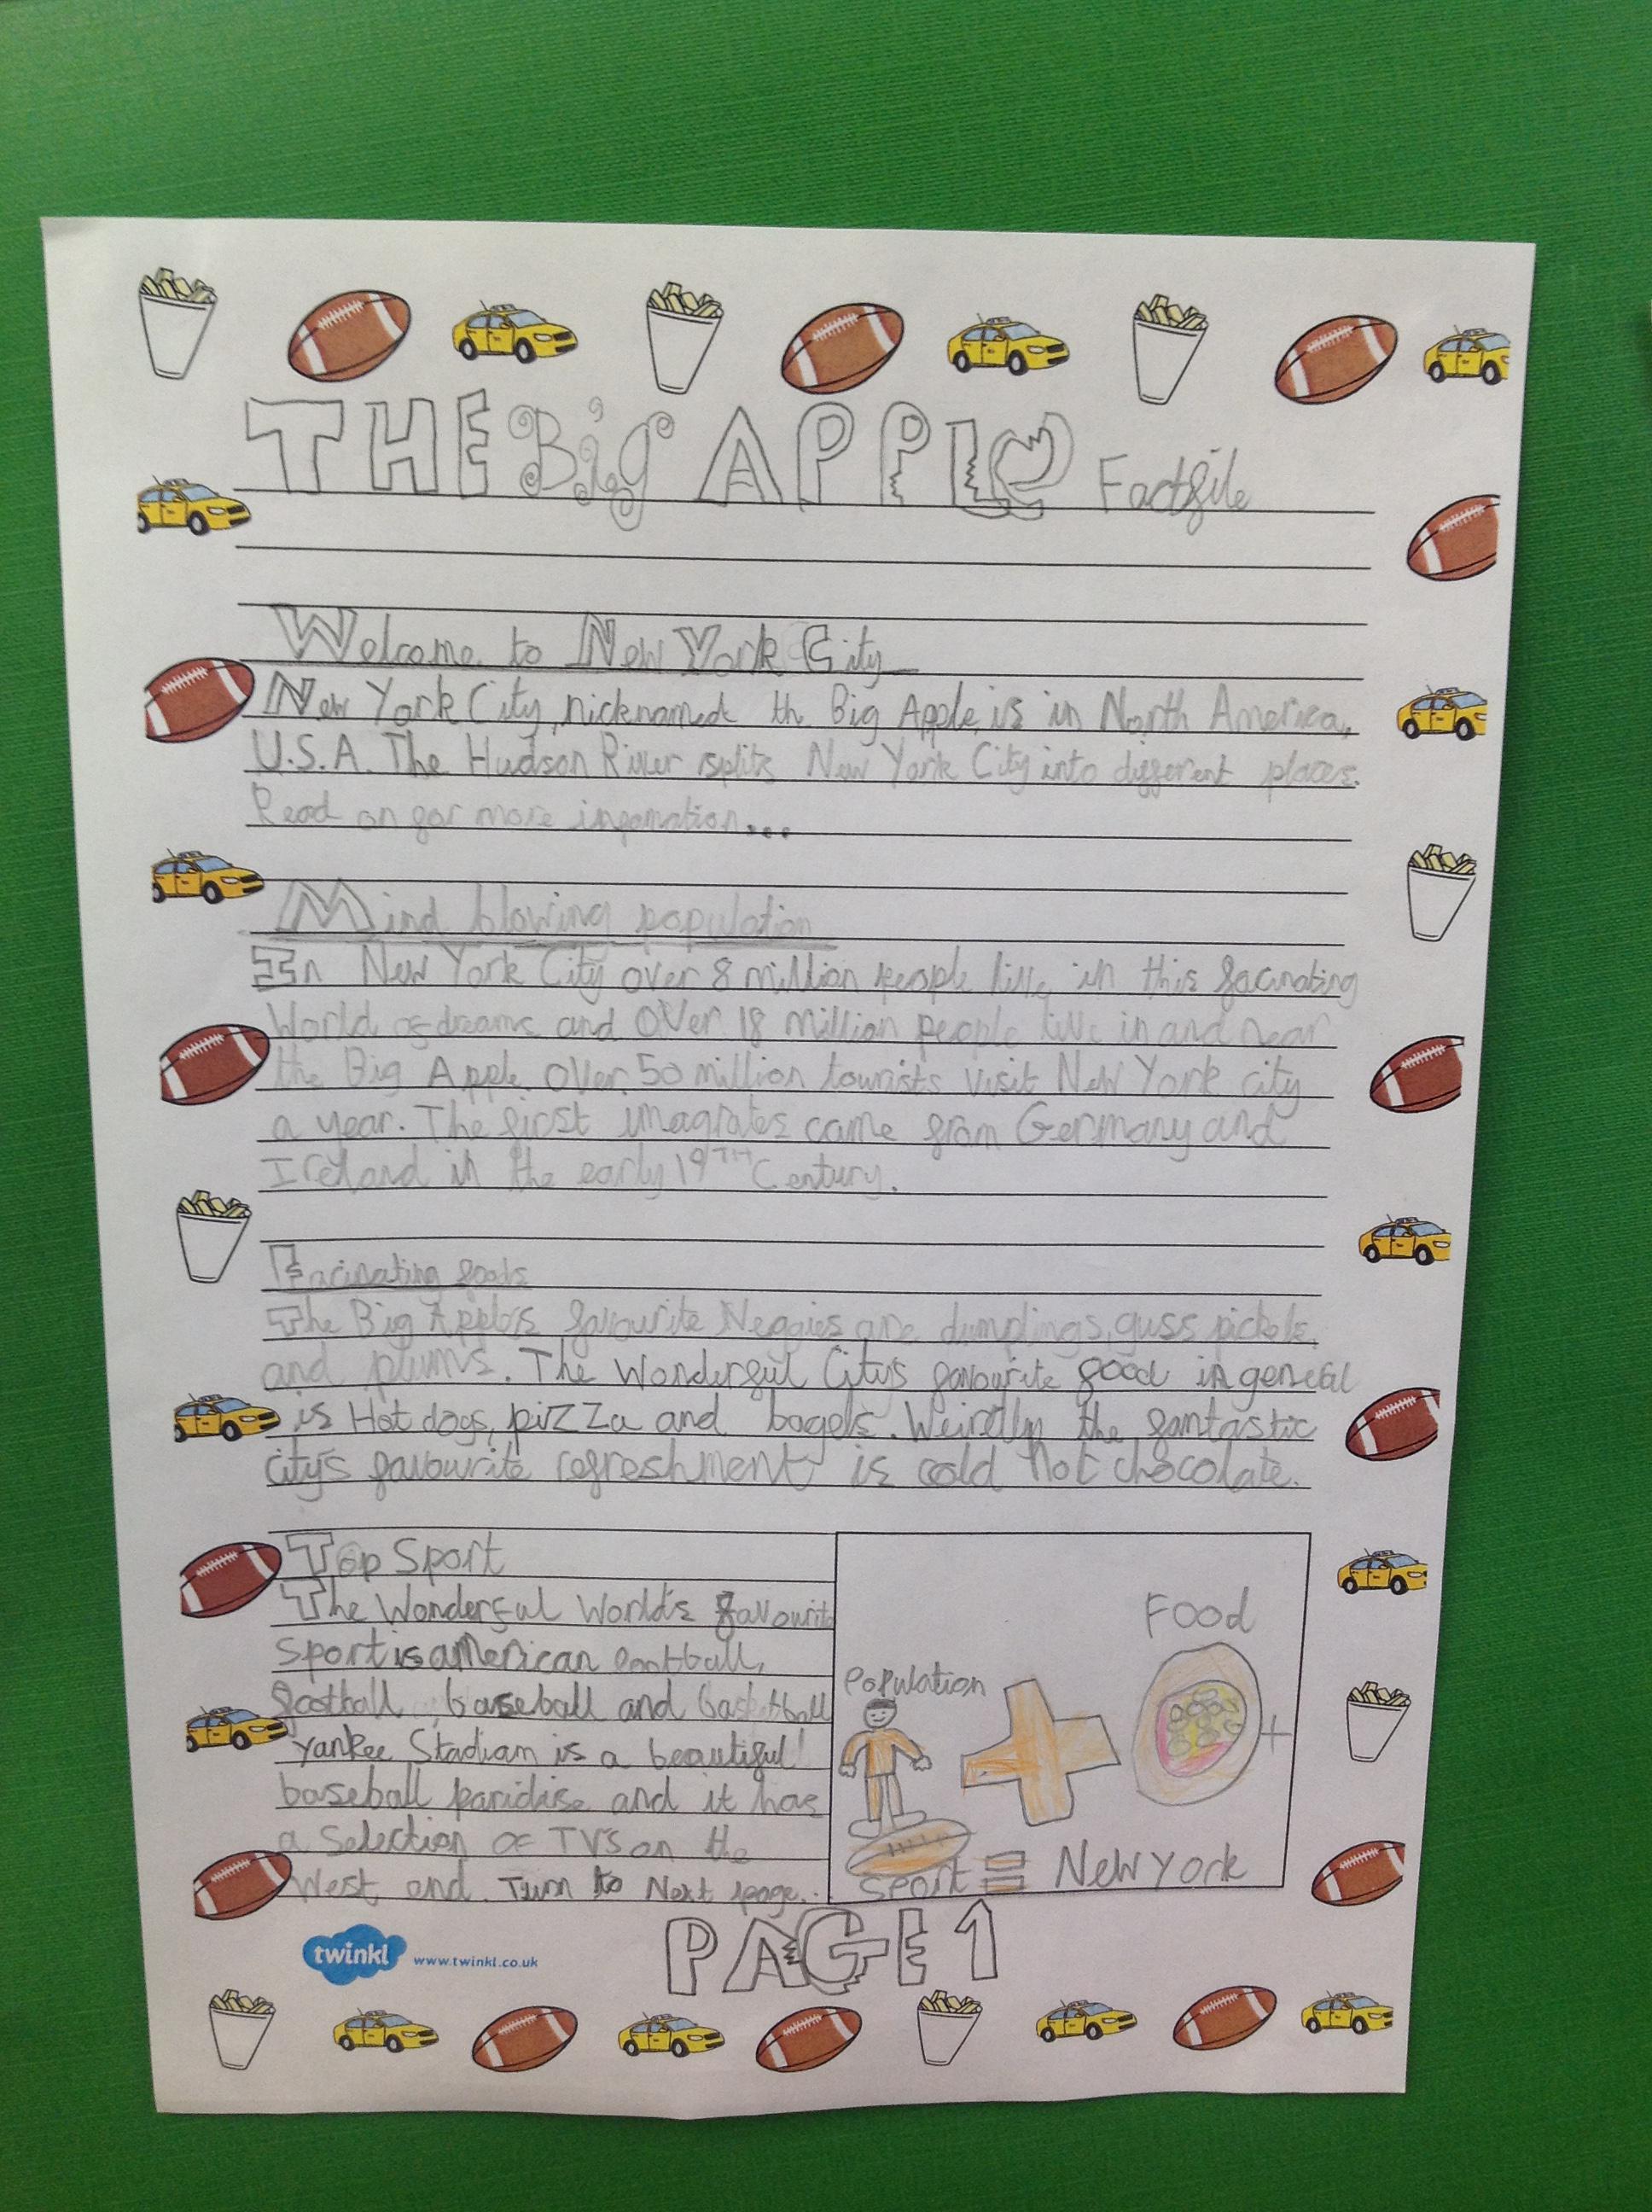 THE Big APPLe Factfile
Welcome to New York City
New York City, nicknamed th Big Apple, is in North America,
U.S.A. The Hudson River splits New York City into different places.
Read on for more infomation...
Mind blowing population
In New York City over 8 million people live in this facinating
World of dreams and over 18 million people live in and near
the Big Apple. Over 50 million tourists visit New York city
a year. The first imagrates came from Germany and
Ireland in the early 19TH Century.
Facinating foods
The Big Apple's favourite Neggies are dumplings, guss pickels
and plums. The Wonderful City's favourite food in general
is Hot dogs, pizza and bagels. Weirdly the fantastic
city's favourite refreshment is cold hot chocolate.
Top Sport
The Wonderful World's favourite
sport is american football,
football, baseball and basketball
yankee Stadiam is a beautiful
baseball paridise and it has
a Selection of TV's on the
West end. Turn to Next page..
Food
Population
+
sport = New york
PAGE 1
twinkl www.twinkl.co.uk